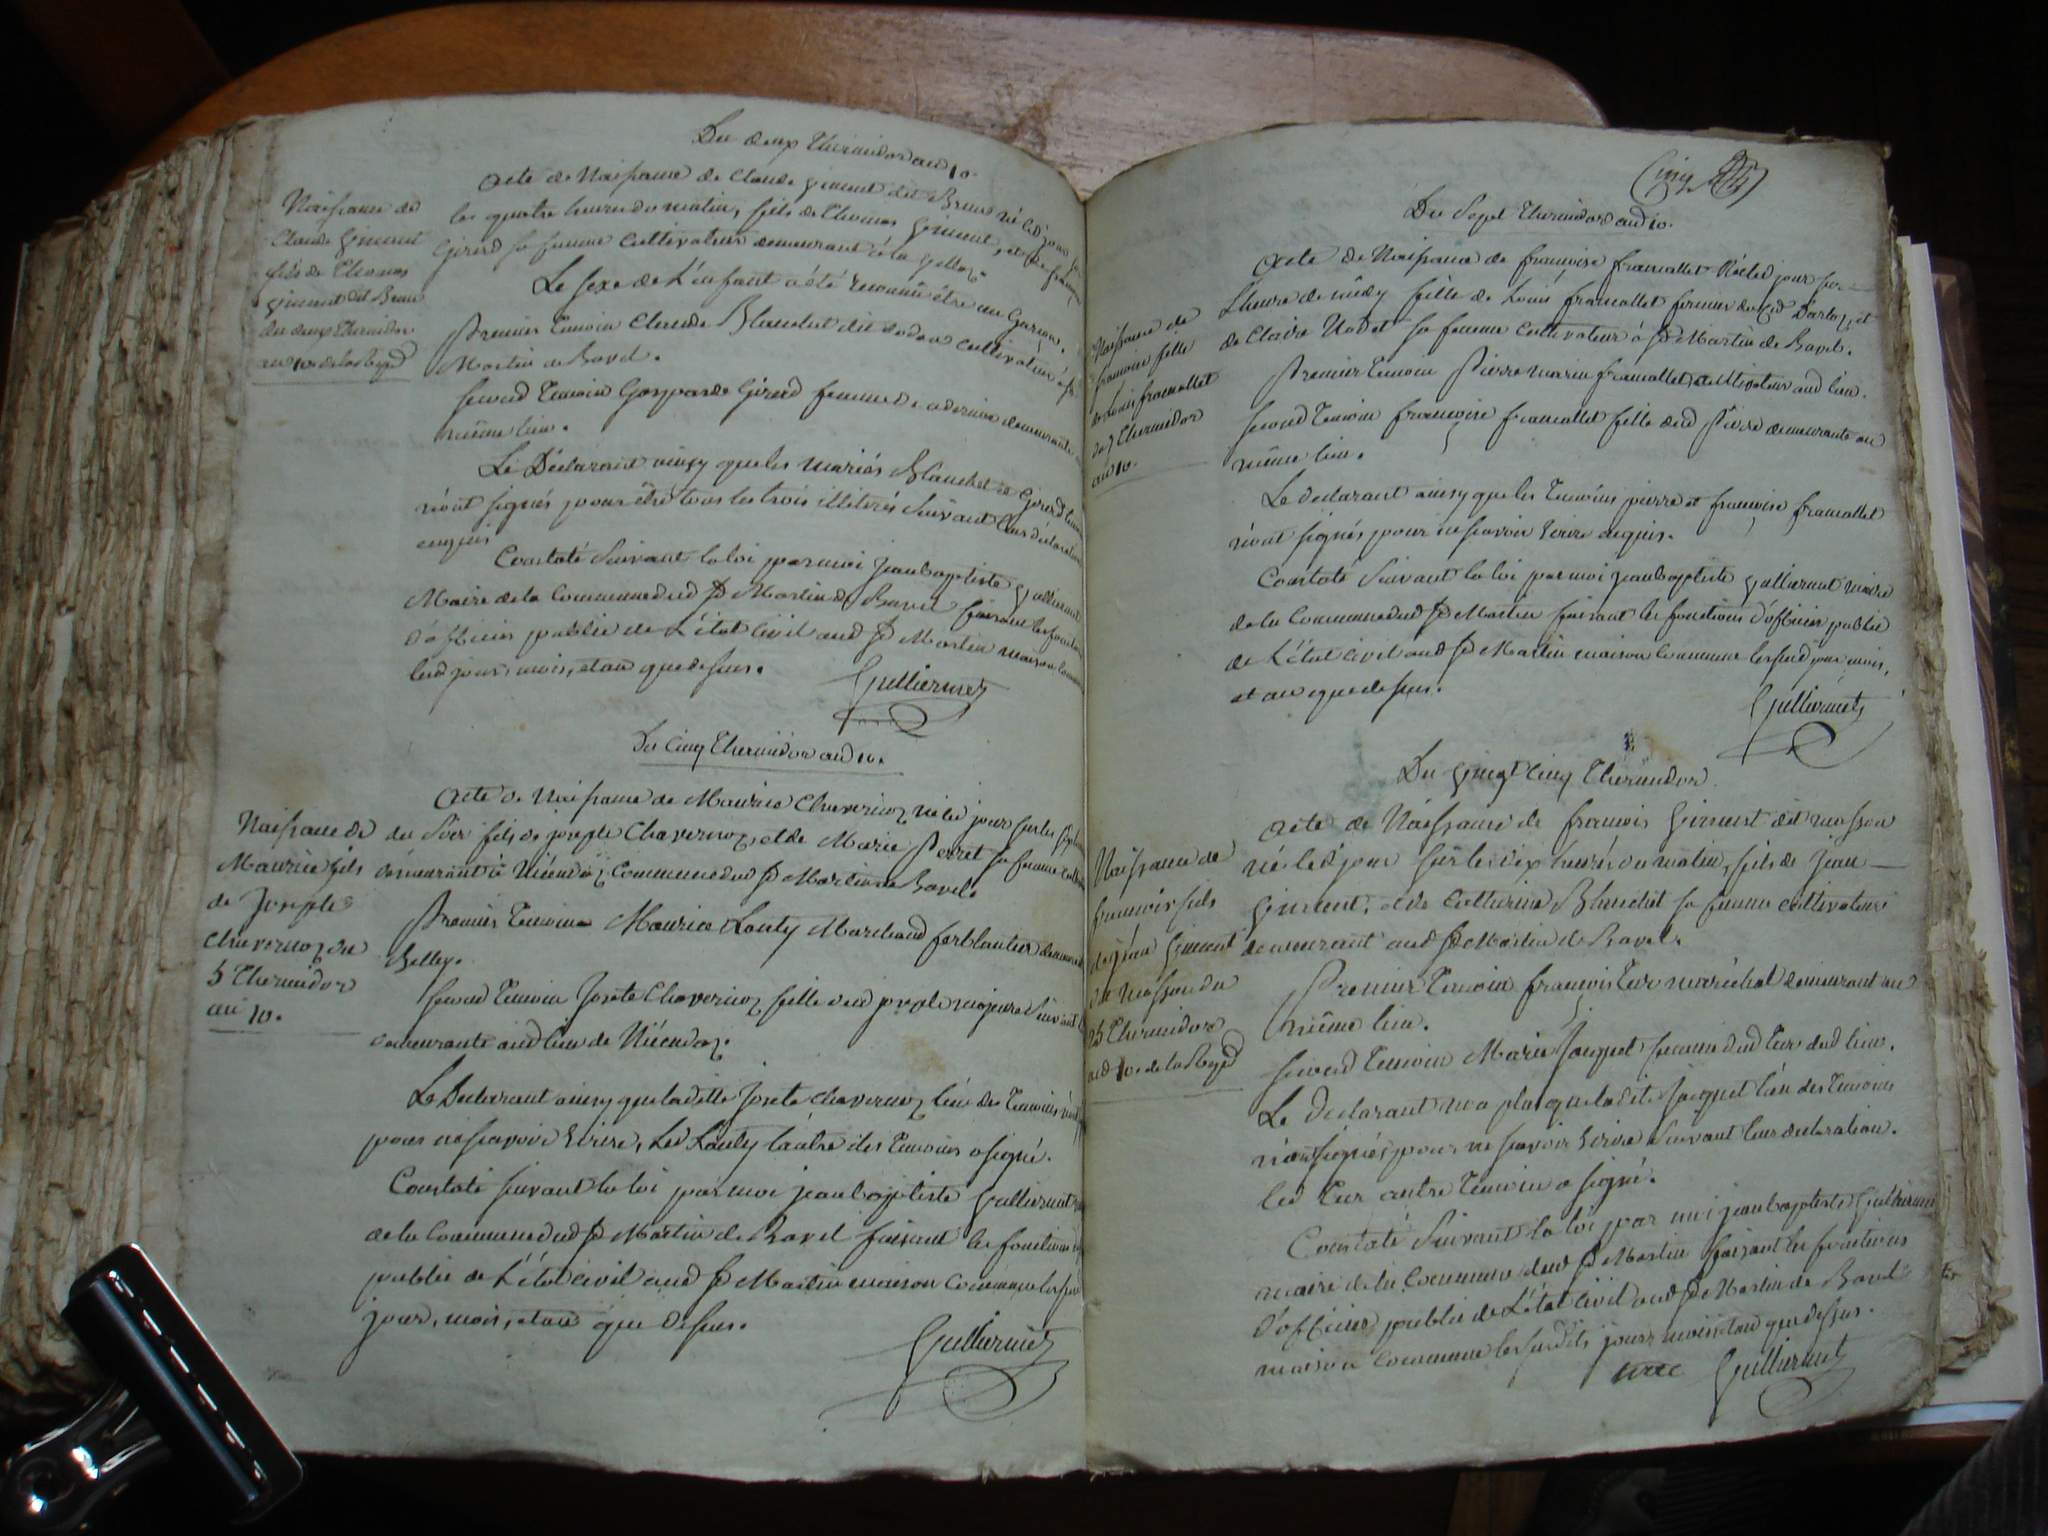 Du deux Thermidor an 10.
Naissance de
Claude Ginent
fils de Thomas
Ginent dit Beau
du deux Thermidor
an 10 de la
acte de Naissance de Claude ginent dit né led jour
les quatre heures du matin, fils de Thomas Ginent, et de
Girerd sa femme cultivateurs demeurant à la
Le sexe de L'enfant a été reconnu être un Garçon.
Premier Temoin Claude Blanchet dit cultivateur à
Martin de Bavel.
second Temoin Gasparde Girerd femme demeurante
même lieu.
Le Déclarant ainsy que les mariés Blanchet et Girerd
n'ont signés pour être tous les trois illiterés Suivant leurs déclarations
enquis
Constaté Suivant la loi par moi Jean baptiste Guilliermet
Maire de la Commune dud St Martin de Bavel faisant les fonctions
d'officier public de L'état Civil aud St Martin maison commune
lesd jour, mois, et an que dessus.
Guilliermet
Du Cinq Thermidor an 10.
Naissance de
Maurice fils
de Joseph
Chavernoz du
5 Thermidor
an 10.
Acte de Naissance de Maurice Chavernoz né led jour sur les
du Soir fils de joseph Chavernoz, et de Marie Perret sa femme
demeurant à Commune dud St Martin de Bavel.
Premier Temoin Maurice Louty Marchand ferblantier
Belley.
second Temoin Josete Chavernoz fille dud joseph majeure
demeurante aud lieu de
Le Déclarant ainsy que ladite Josete Chavernoz l'un des Temoins n'ont
pour ne savoir Ecrire, Led Louty l'autre des Temoins a signé.
Constaté suivant la loi par moi jean baptiste Guilliermet
de la Commune dud St Martin de Bavel faisant les fonctions
public de L'état civil aud St Martin maison Commune
jour, mois, et an que dessus.
Guilliermet
Cinq
Du Sept Thermidor an 10.
Naissance de
francoise fille
de Louis francollet
du 7 Thermidor
an 10.
Acte de Naissance de françoise francollet Née led jour sur
L'heure de midy fille de Louis francollet fermier et
de Claire Nodet sa femme cultivateur à St Martin de Bavel.
Premier Temoin Pierre marin francollet cultivateur aud lieu.
second Temoin francoise francollet fille dud Pierre demeurante au
même lieu.
Le declarant ainsy que les Temoins pierre et françoise francollet
n'ont signés pour ne savoir Ecrire enquis.
Constaté Suivant la loi par moi jean baptiste Guilliermet maire
de la Commune dud St Martin faisant les fonctions d'officier public
de L'état civil aud St Martin maison Commune les jour mois,
et an que dessus.
Guilliermet
Du Vingt Cinq Thermidor
Naissance de
francois fils
de jean Ginent
dit Masson du
25 Thermidor
an 10 de la
acte de Naissance de francois Ginent dit masson
né led jour sur les dix heures du matin, fils de Jean
Ginent, et de Catherine Blanchet sa femme cultivateurs
demeurant aud St Martin de Bavel.
Premier Temoin françois maréchal demeurant au
même lieu.
second Temoin Marie Jacquet femme dud dud lieu.
Le declarant que ladite Jacquet l'un des Temoins
n'ont signés pour ne savoir Ecrire Suivant leur declaration.
led autre Temoin a signé.
Constaté Suivant la loi par moi jean baptiste Guilliermet
maire de la Commune dud St Martin faisant les fonctions
d'officier public de L'état Civil aud St Martin de Bavel
maison commune les susdits jour mois et an que dessus.
Guilliermet